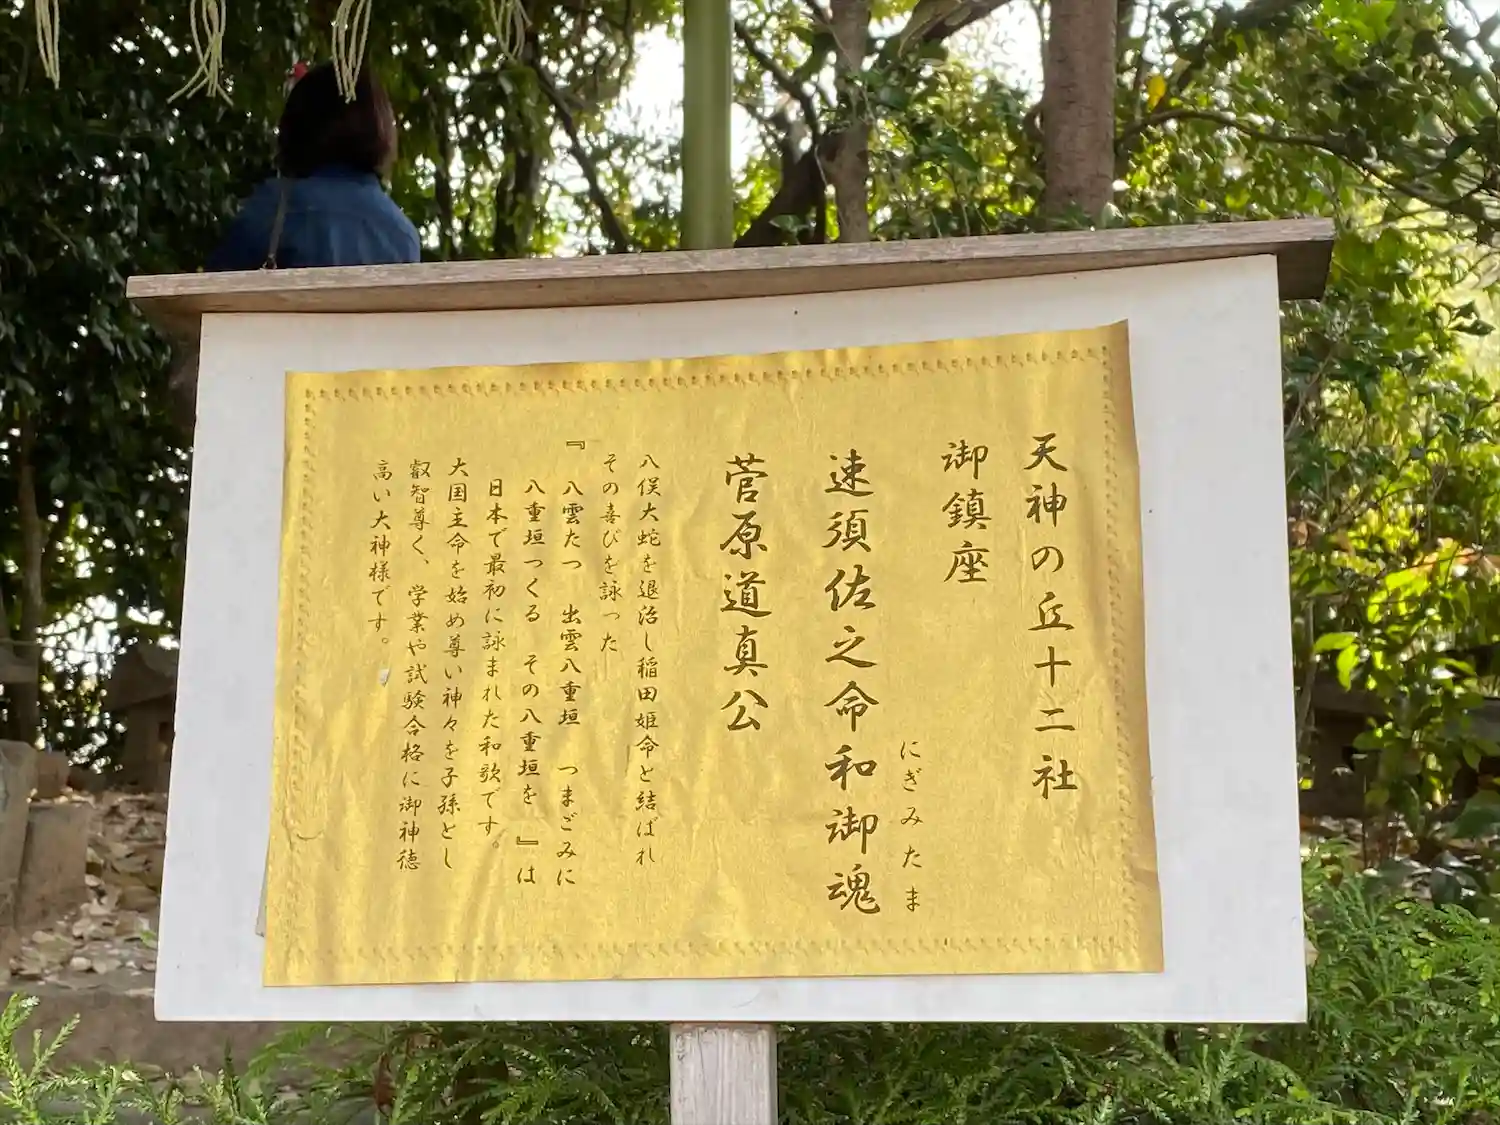 天神の丘十二社
御鎮座
速須佐之命和御魂
にぎみたま
菅原道真公
八俣大蛇を退治し稲田姫命と結ばれ
その喜びを詠った
『八雲たつ 出雲八重垣 つまごみに
八重垣つくる その八重垣を 』は
日本で最初に詠まれた和歌です。
大国主命を始め尊い神々を子孫とし
叡智尊く、学業や試験合格に御神徳
高い大神様です。